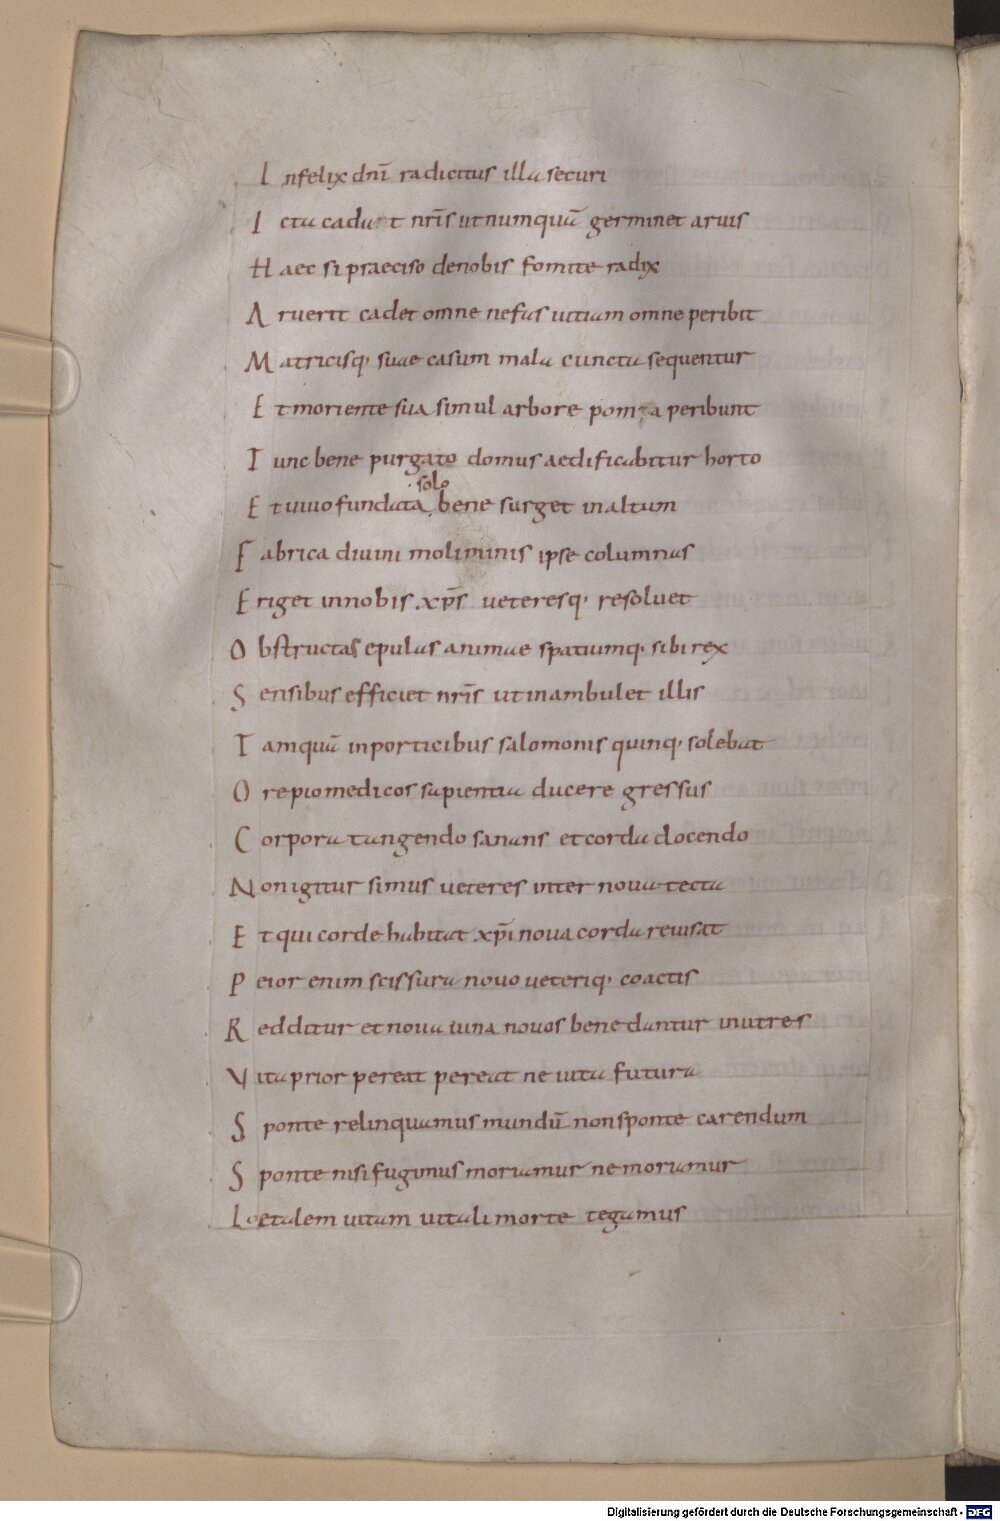 Infelix dnī radicitus illa securi
Icta cadat nrīs ut numquā germinet aruis
Haec si praeciso denobis fomite radix
Aruerit cadet omne nefas uitium omne peribit
Matricisq· suae casum mala cuncta sequentur
Et moriente sua simul arbore poma peribunt
Tunc bene purgato domus aedificabitur horto
solo
Et uiuo fundata bene surget in altum
Fabrica diuini moliminis ipse columnas
Eriget innobis xp̄s ueteresq· resoluet
Obstructas epulas animae spatiumq· sibi rex
Sensibus efficiet nrīs ut inambulet illis
Tamquā inporticibus salomonis quinq· solebat
Ore pio medicos sapientia ducere gressus
Corpora tangendo sanans et corda docendo
Non igitur simus ueteres inter noua tecta
Et qui corde habitat xp̄i noua corda reuisat
Peior enim scissura nouo ueteriq· coactis
Redditur et noua uina nouos bene dantur inutres
Vita prior pereat pereat ne uita futura
Sponte relinquamus mundū non sponte carendum
Sponte nisi fugimus moriamur ne moriamur
Loetalem uitam uitali morte tegamus
Digitalisierung gefördert durch die Deutsche Forschungsgemeinschaft - DFG